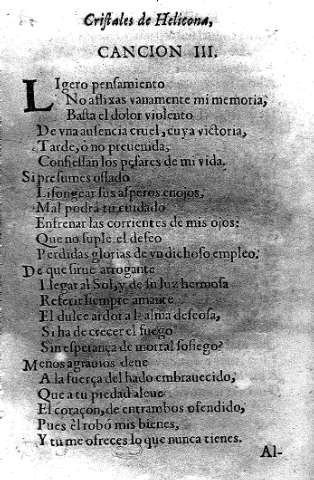 Criſtales de Helicona,
CANCION III.
LIgero penſamiento
No aflixas vanamente mi memoria,
Baſta el dolor violento
De vna auſencia cruel, cuya victoria,
Tarde, o no preuenida,
Confieſſan los peſares de mi vida.
Si preſumes oſſado
Liſongear ſus aſperos enojos,
Mal podrà tu cuidado
Enfrenar las corrientes de mis ojos:
Que no ſuple el deſeo
Perdidas glorias de vn dichoſo empleo.
De que ſirue arrogante
Llegar al Sol, y de ſu luz hermoſa
Referir ſiempre amante
El dulce ardor a la alma deſeoſa,
Si ha de crecer el fuego
Sin eſperança de mortal ſoſiego?
Menos agrauios deue
A la fuerça del hado embrauecido,
Que a tu piedad aleue
El coraçon, de entrambos ofendido,
Pues èl robò mis bienes,
Y tu me ofreces lo que nunca tienes.
Al-